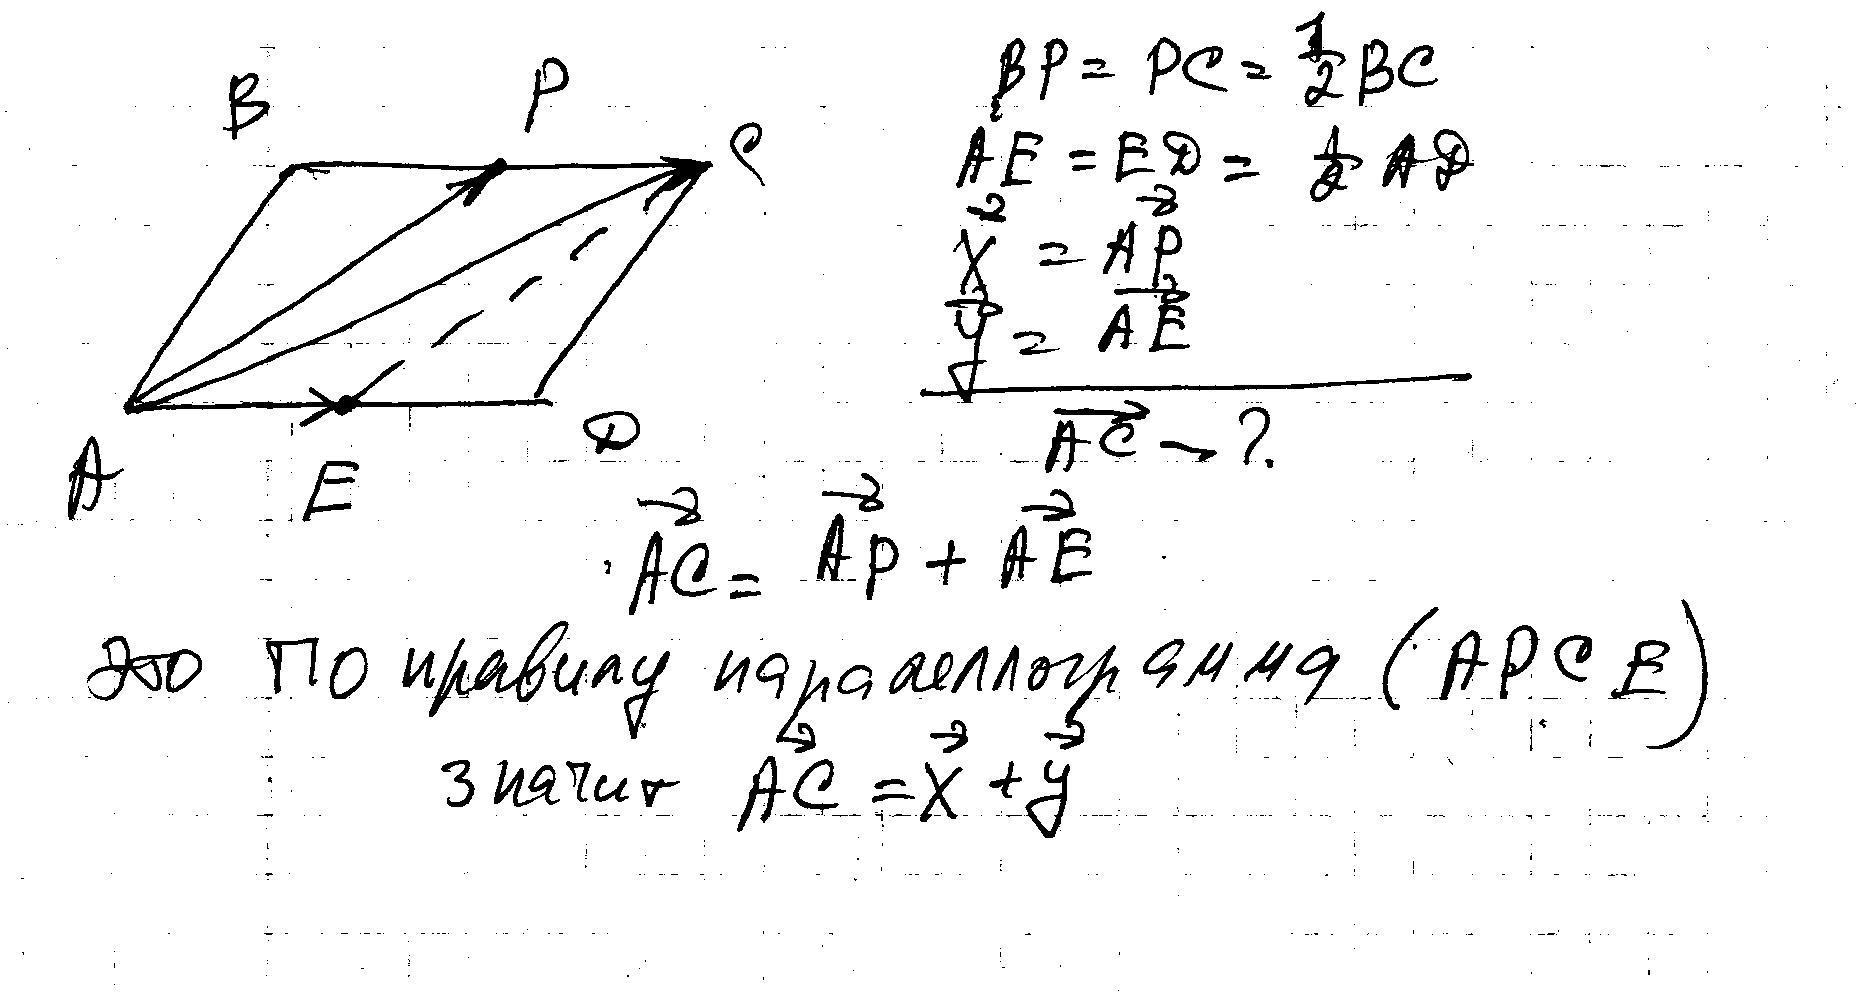 B P C
A E D
BP = PC = 1/2 BC
AE = ED = 1/2 AD
x⃗ = AP⃗
y⃗ = AE⃗
AC⃗ - ?
AC⃗ = AP⃗ + AE⃗
это По правилу параллелограмма (APCE)
значит AC⃗ = x⃗ + y⃗